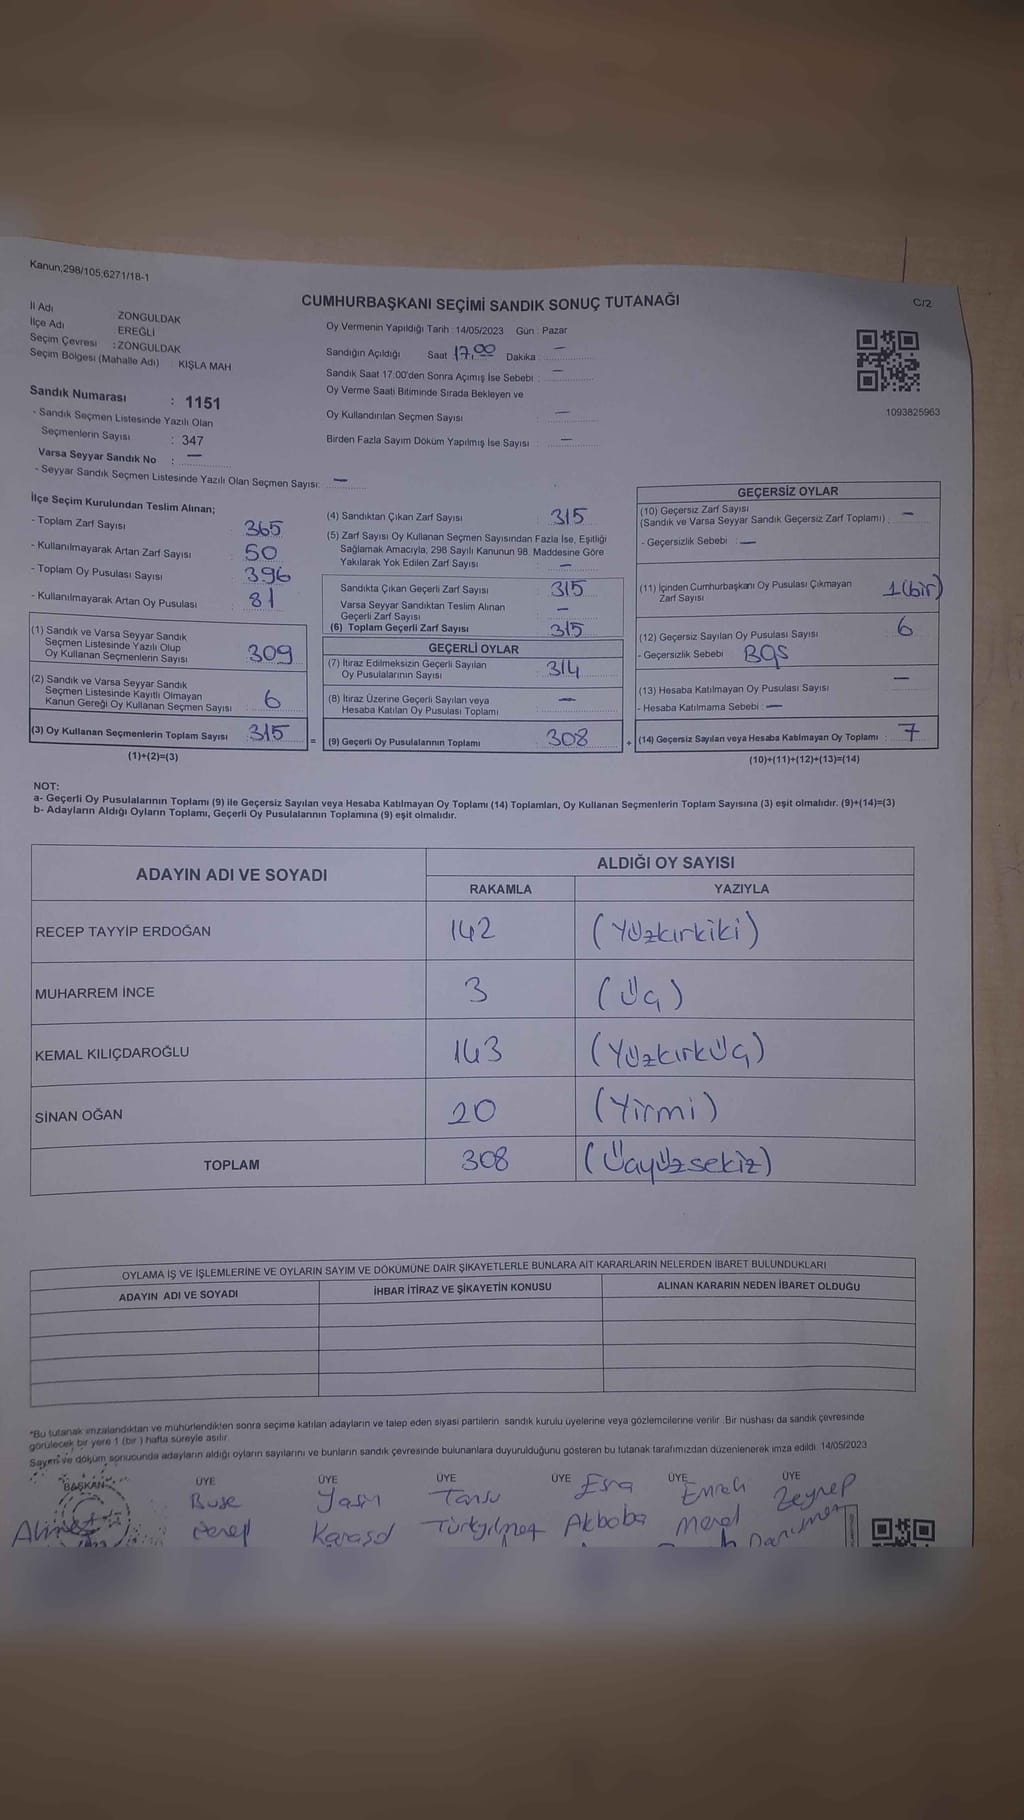 Kanun;298/105;6271/18-1
CUMHURBAŞKANI SEÇİMİ SANDIK SONUÇ TUTANAĞI
C/2
İl Adı ZONGULDAK
İlçe Adı : EREĞLİ
Seçim Çevresi : ZONGULDAK
Seçim Bölgesi (Mahalle Adı) : KIŞLA MAH
Sandık Numarası : 1151
- Sandık Seçmen Listesinde Yazılı Olan
Seçmenlerin Sayısı : 347
Varsa Seyyar Sandık No : —
- Seyyar Sandık Seçmen Listesinde Yazılı Olan Seçmen Sayısı: —
Oy Vermenin Yapıldığı Tarih : 14/05/2023 Gün : Pazar
Sandığın Açıldığı Saat 17.00 Dakika : —
Sandık Saat 17:00'den Sonra Açılmış İse Sebebi : —
Oy Verme Saati Bitiminde Sırada Bekleyen ve
Oy Kullandırılan Seçmen Sayısı —
Birden Fazla Sayım Döküm Yapılmış İse Sayısı : —
1093825963
İlçe Seçim Kurulundan Teslim Alınan;
- Toplam Zarf Sayısı : 365
- Kullanılmayarak Artan Zarf Sayısı : 50
- Toplam Oy Pusulası Sayısı : 396
- Kullanılmayarak Artan Oy Pusulası : 81
(1) Sandık ve Varsa Seyyar Sandık
Seçmen Listesinde Yazılı Olup
Oy Kullanan Seçmenlerin Sayısı : 309
(2) Sandık ve Varsa Seyyar Sandık
Seçmen Listesinde Kayıtlı Olmayan
Kanun Gereği Oy Kullanan Seçmen Sayısı : 6
(3) Oy Kullanan Seçmenlerin Toplam Sayısı : 315
(1)+(2)=(3)
(4) Sandıktan Çıkan Zarf Sayısı : 315
(5) Zarf Sayısı Oy Kullanan Seçmen Sayısından Fazla İse, Eşitliği
Sağlamak Amacıyla, 298 Sayılı Kanunun 98. Maddesine Göre
Yakılarak Yok Edilen Zarf Sayısı : —
Sandıkta Çıkan Geçerli Zarf Sayısı : 315
Varsa Seyyar Sandıktan Teslim Alınan
Geçerli Zarf Sayısı : —
(6) Toplam Geçerli Zarf Sayısı : 315
GEÇERLİ OYLAR
(7) İtiraz Edilmeksizin Geçerli Sayılan
Oy Pusulalarının Sayısı : 314
(8) İtiraz Üzerine Geçerli Sayılan veya
Hesaba Katılan Oy Pusulası Toplamı : —
= (9) Geçerli Oy Pusulalarının Toplamı : 308
GEÇERSİZ OYLAR
(10) Geçersiz Zarf Sayısı
(Sandık ve Varsa Seyyar Sandık Geçersiz Zarf Toplamı) : —
- Geçersizlik Sebebi : —
(11) İçinden Cumhurbaşkanı Oy Pusulası Çıkmayan
Zarf Sayısı : 1(bir)
(12) Geçersiz Sayılan Oy Pusulası Sayısı : 6
- Geçersizlik Sebebi : Boş
(13) Hesaba Katılmayan Oy Pusulası Sayısı : —
- Hesaba Katılmama Sebebi : —
+ (14) Geçersiz Sayılan veya Hesaba Katılmayan Oy Toplamı : 7
(10)+(11)+(12)+(13)=(14)
NOT:
a- Geçerli Oy Pusulalarının Toplamı (9) ile Geçersiz Sayılan veya Hesaba Katılmayan Oy Toplamı (14) Toplamları, Oy Kullanan Seçmenlerin Toplam Sayısına (3) eşit olmalıdır. (9)+(14)=(3)
b- Adayların Aldığı Oyların Toplamı, Geçerli Oy Pusulalarının Toplamına (9) eşit olmalıdır.
ADAYIN ADI VE SOYADI ALDIĞI OY SAYISI
RAKAMLA YAZIYLA
RECEP TAYYİP ERDOĞAN 142 (Yüzkırkiki)
MUHARREM İNCE 3 (Üç)
KEMAL KILIÇDAROĞLU 143 (Yüzkırküç)
SİNAN OĞAN 20 (Yirmi)
TOPLAM 308 (Üçyüzsekiz)
OYLAMA İŞ VE İŞLEMLERİNE VE OYLARIN SAYIM VE DÖKÜMÜNE DAİR ŞİKAYETLERLE BUNLARA AİT KARARLARIN NELERDEN İBARET BULUNDUKLARI
ADAYIN ADI VE SOYADI İHBAR İTİRAZ VE ŞİKAYETİN KONUSU ALINAN KARARIN NEDEN İBARET OLDUĞU
*Bu tutanak imzalandıktan ve mühürlendikten sonra seçime katılan adayların ve talep eden siyasi partilerin sandık kurulu üyelerine veya gözlemcilerine verilir. Bir nüshası da sandık çevresinde
görülecek bir yere 1 (bir ) hafta süreyle asılır.
Sayım ve döküm sonucunda adayların aldığı oyların sayılarını ve bunların sandık çevresinde bulunanlara duyurulduğunu gösteren bu tutanak tarafımızdan düzenlenerek imza edildi. 14/05/2023
BAŞKAN ÜYE ÜYE ÜYE ÜYE ÜYE ÜYE
Ahmet Buse Yasin Tansu Esra Emrah Zeynep
Akbaba Danışman